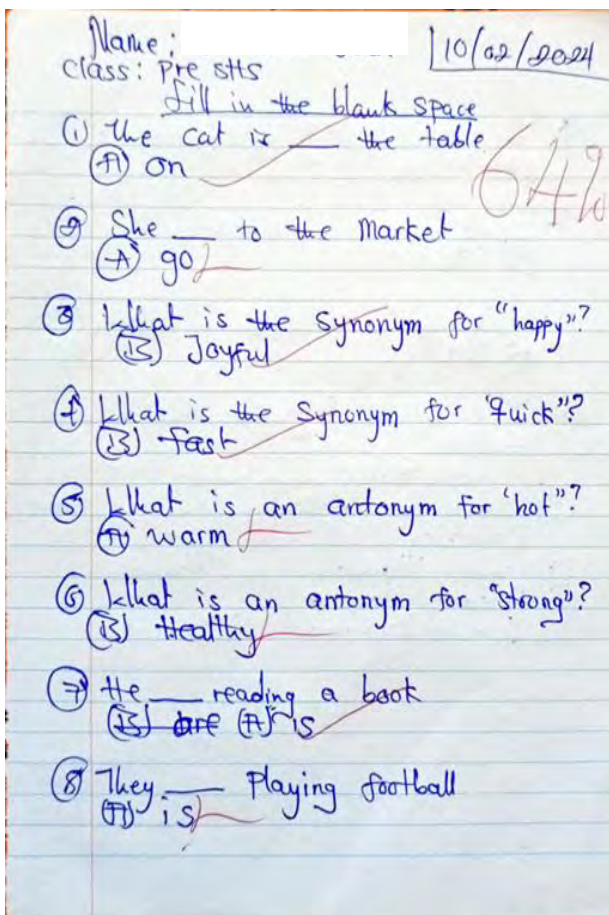 Name:
class: Pre SHS
10/02/2024
fill in the blank space
① the cat is ___ the table
(A) on
64%
② She ___ to the market
(A) go
③ What is the synonym for "happy"?
(B) Joyful
④ What is the synonym for "quick"?
(B) fast
⑤ What is an antonym for "hot"?
(A) warm
⑥ What is an antonym for "strong"?
(B) Healthy
⑦ He ___ reading a book
(B) are (A) is
⑧ They ___ Playing football
(A) is